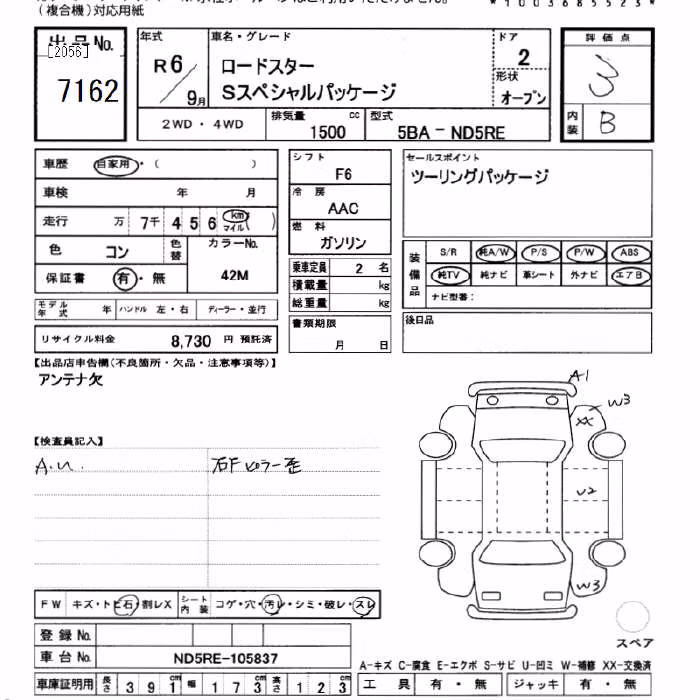 (複合機)対応用紙
*1003685523*
出品No.
[2056]
7162
年式
R6/9月
車名・グレード
ロードスター
Sスペシャルパッケージ
ドア
2
形状
オープン
評価点
3
内装
B
2WD・4WD
排気量
1500 cc
型式
5BA-ND5RE
車歴 自家用・( )
車検 年 月
走行 万 7千 4 5 6 km マイル ( )
色 コン 色替
カラーNo.
42M
保証書 有・無
シフト
F6
冷房
AAC
燃料
ガソリン
乗車定員 2 名
積載量 kg
総重量 kg
書類期限
月 日
セールスポイント
ツーリングパッケージ
装備品
S/R 純A/W P/S P/W ABS
純TV 純ナビ 革シート 外ナビ エアB
ナビ型番:
後日品
モデル年式 年 ハンドル 左・右 ディーラー・並行
リサイクル料金 8,730 円 預託済
【出品店申告欄(不良箇所・欠品・注意事項等)】
アンテナ欠
【検査員記入】
A.u.
右Fピラー歪
A1
W3
XX
U2
W3
FW キズ・トビ石・割レX シート内装 コゲ・穴・汚レ・シミ・破レ・スレ
登録No.
車台No. ND5RE-105837
車庫証明用 長さ 391cm 幅 173cm 高さ 123cm
スペア
A-キズ C-腐食 E-エクボ S-サビ U-凹ミ W-補修 XX-交換済
工具 有・無 ジャッキ 有・無